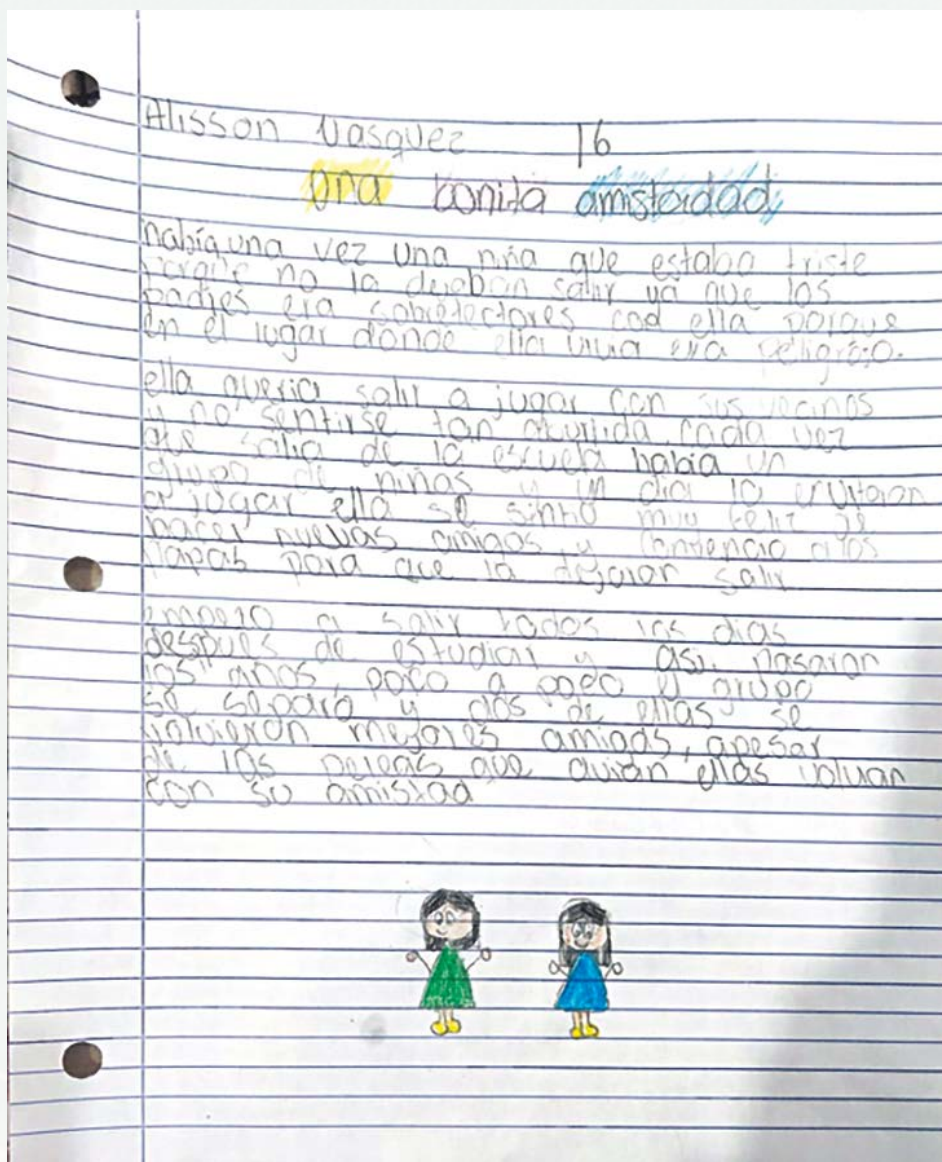 Alisson Vasquez 16
una bonita amistadad
había una vez una niña que estaba triste
porque no la dejaban salir ya que los
padres era sobretectores cod ella porque
en el lugar donde ella vivia era peligroso.
ella queria salir a jugar con sus vecinos
y no sentirse tan aburrida, cada vez
que salia de la escuela habia un
grupo de niñas y un dia la
a jugar ella se sintio muy feliz de
hacer nuevas amigos y a los
papas para que la dejaran salir
empezo a salir todos los dias
despues de estudiar y asi pasaron
los años, poco a poco el grupo
se separo y dos de ellas se
volvieron mejores amigas, apesar
de las peleas que avian ellas
con su amistad